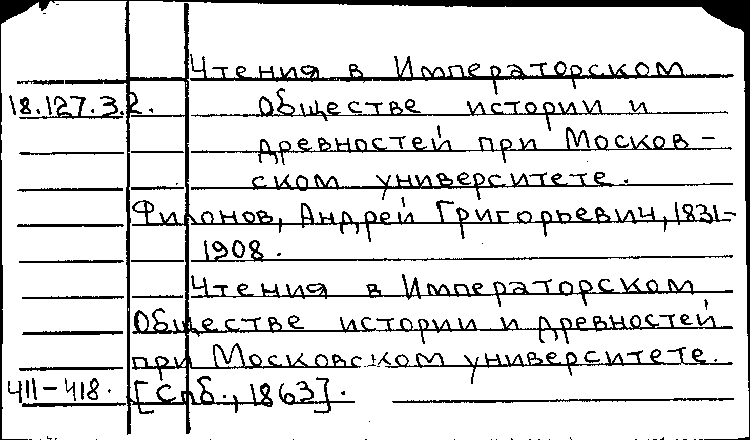 Чтения в Императорском
18.127.3.2. Обществе истории и
древностей при Москов-
ском университете.
Филонов, Андрей Григорьевич, 1831-
1908.
Чтения в Императорском
Обществе истории и древностей
при Московском университете.
411-418. [Спб., 1863].